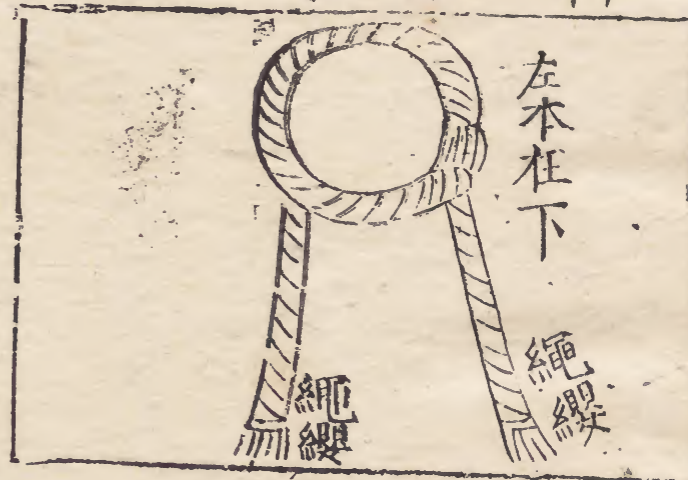 左本在下
繩纓
繩纓